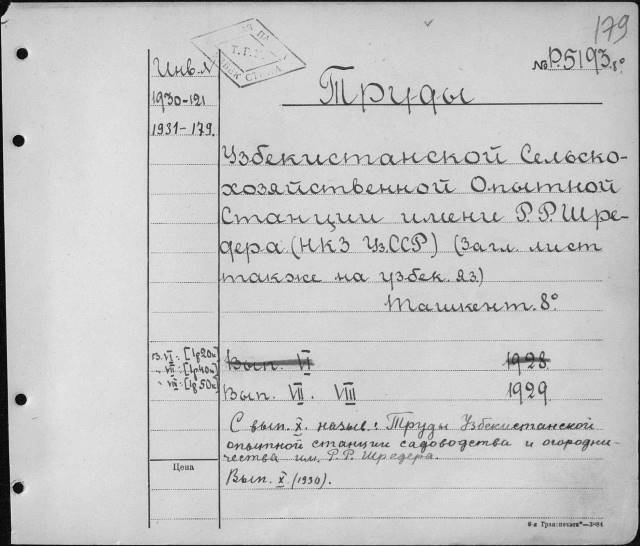 179
№ Р.5193.8°
Т. Г.
Инв. №
1930-121
1931-179.
Труды
Узбекистанской Сельско-
хозяйственной Опытной
Станции имени Р.Р.Шре-
дера (НКЗ Уз.ССР) (Загл. лист
также на узбек. яз.)
Ташкент. 8°
в. VI: [1р20к]
" VII: [1р40к]
" VIII: [1р50к]
Вып. VI 1928
Вып. VII. VIII 1929
С вып. X. назыв.: Труды Узбекистанской
опытной станции садоводства и огородни-
чества им. Р. Р. Шредера.
Цена
Вып. X (1930).